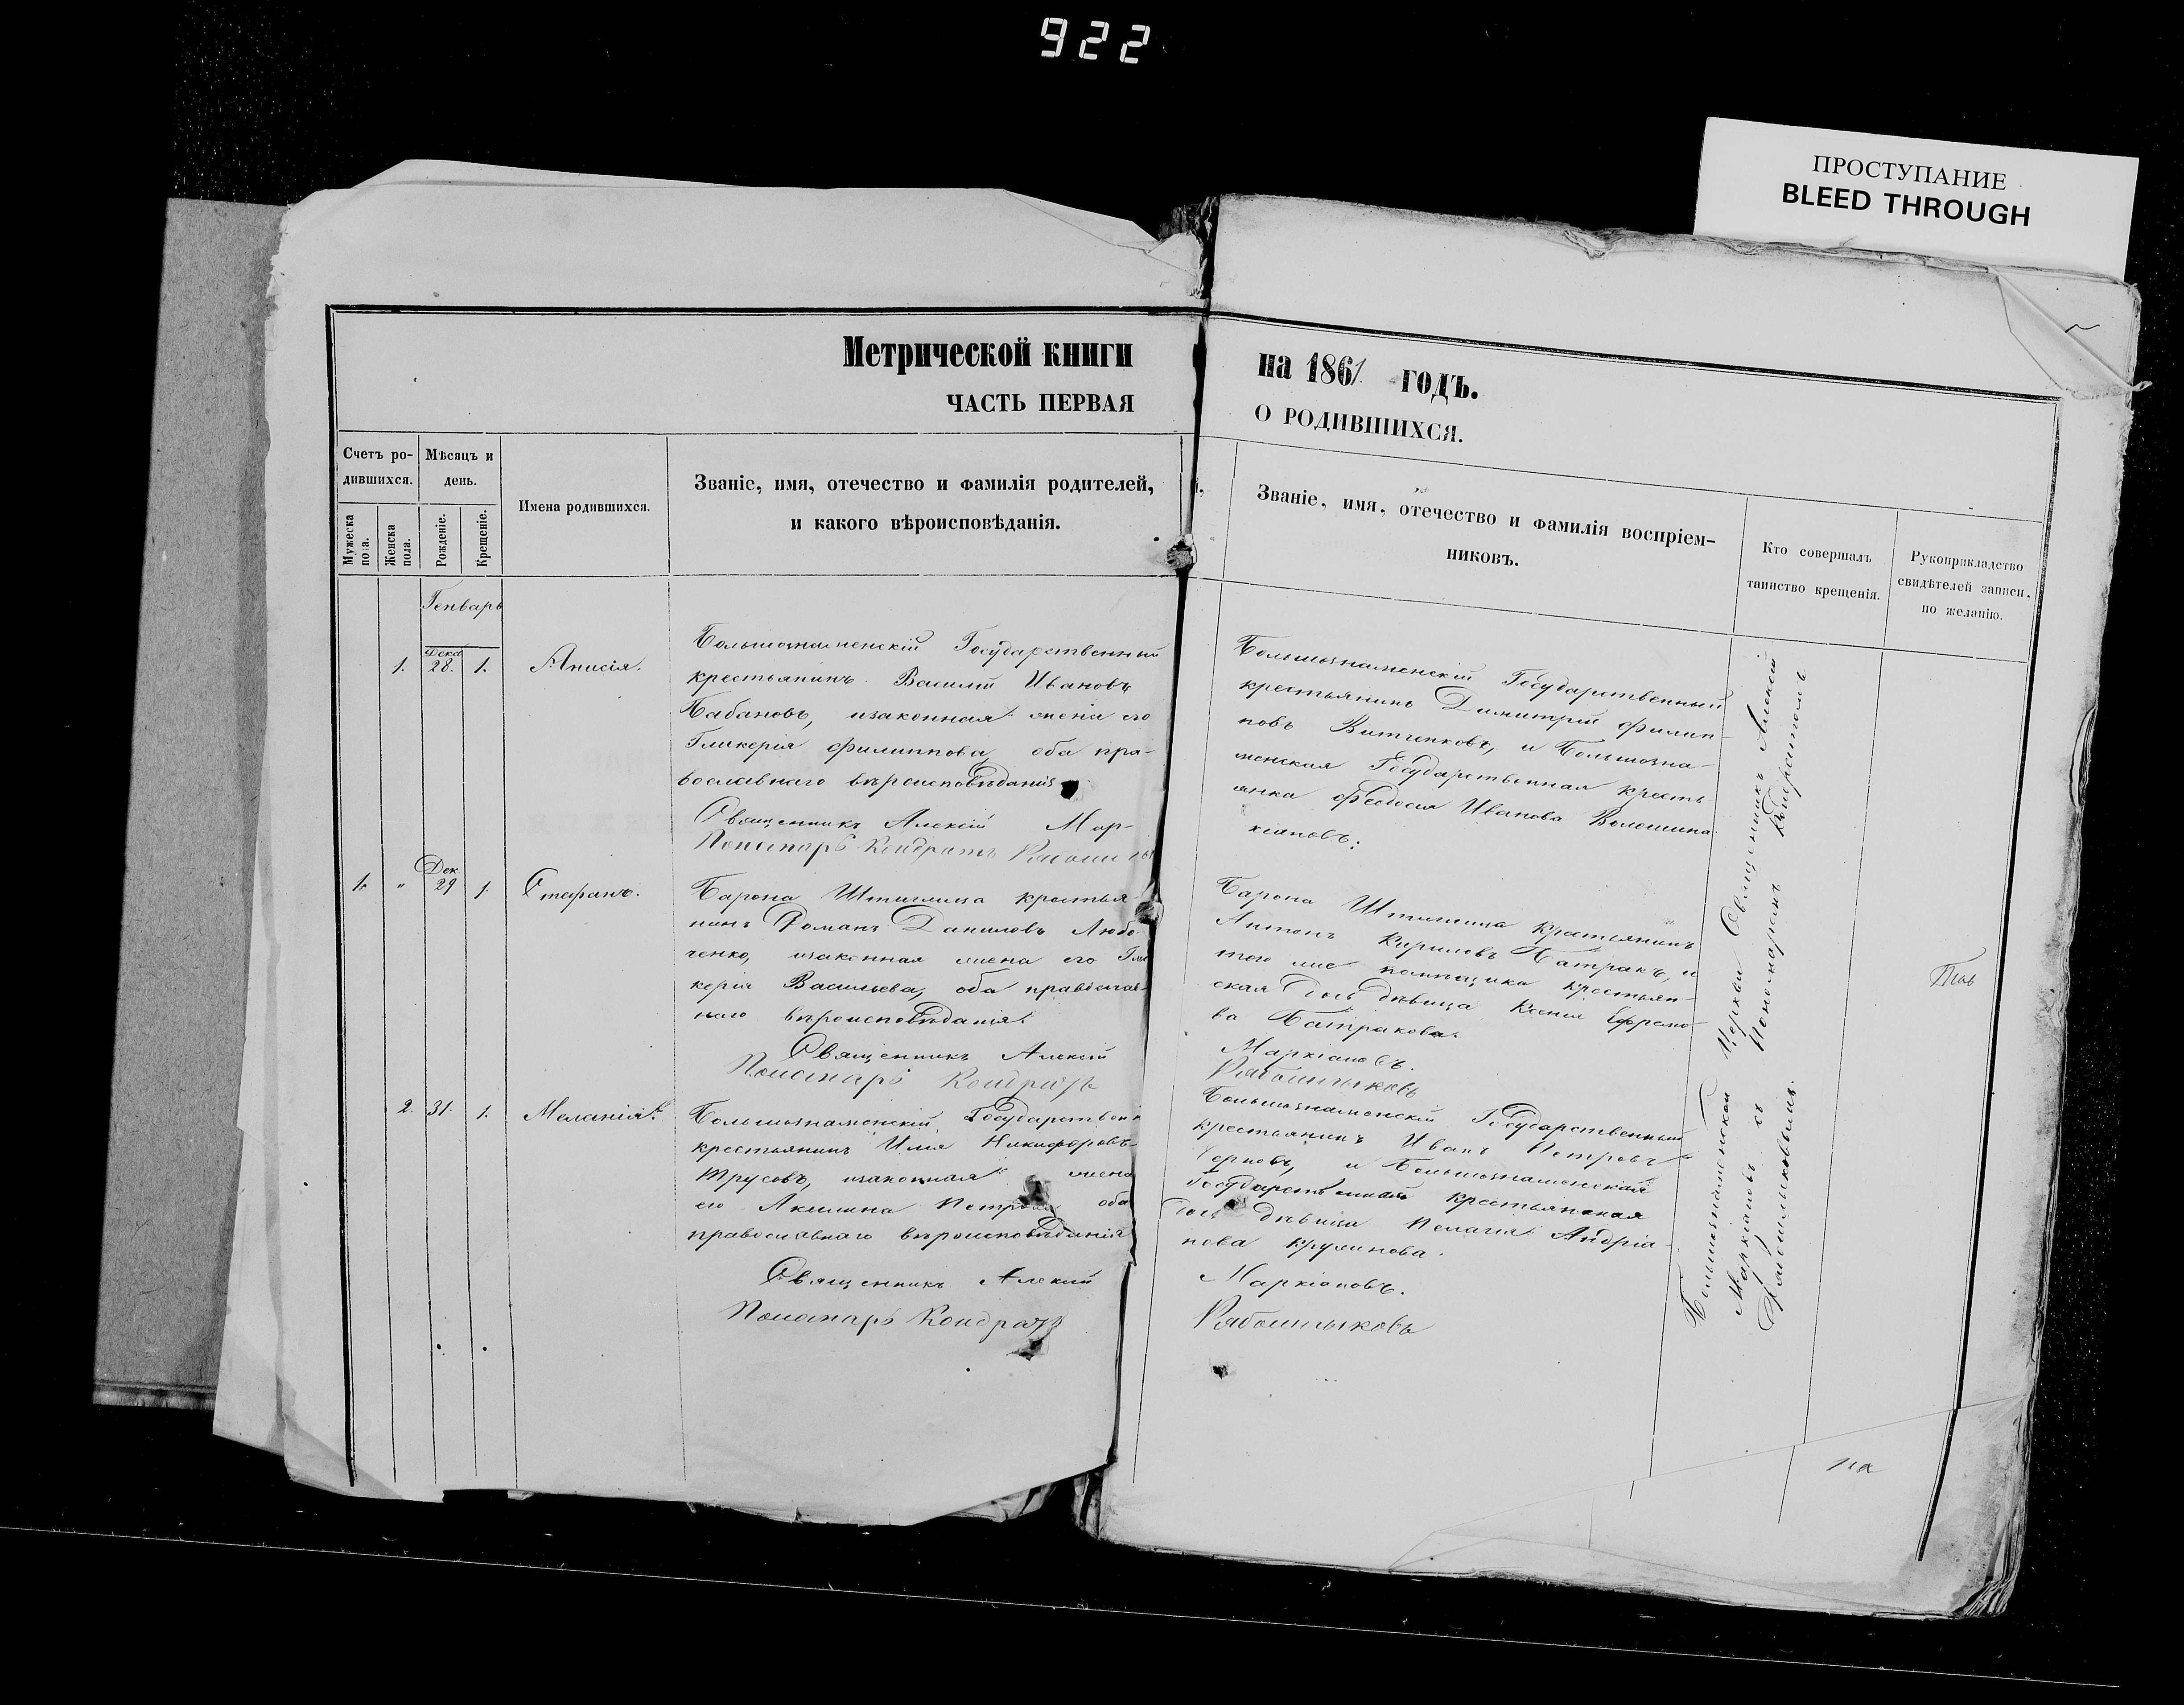 922
ПРОСТУПАНИЕ
BLEED THROUGH
Метрической книги
ЧАСТЬ ПЕРВАЯ
на 1861 годъ.
О РОДИВШИХСЯ.
Счетъ ро-
дившихся.
Мужеска
пола.
Женска
пола.
Мѣсяцъ и
день.
Рожденіе.
Крещеніе.
Имена родившихся.
Званіе, имя, отечество и фамилія родителей,
и какого вѣроисповѣданія.
Званіе, имя, отечество и фамилія воспріем-
никовъ.
Кто совершалъ
таинство крещенія.
Рукоприкладство
свидѣтелей записи,
по желанію.
Генварь
1. Дека 28. 1. Анисія.
Большознаменскій Государственный
крестьянинъ Василій Ивановъ
Кабановъ, изаконная жена его
Гликерія Филиппова, оба пра-
вославнаго вѣроисповѣданія
Священникъ Алексій Мар-
Пономарь Кондратъ
Большознаменскій Государственный
крестьянинъ Димитрій Филип-
повъ Витченковъ, и Большозна-
менская Государственная кресть
янка Феодосія Иванова Волошина
кіановъ:
1. " Дек. 29 1. Стефанъ.
Барона Штиглица крестья-
нинъ Романъ Даниловъ Любо-
ченко, изаконная жена его Гли
керія Васильева, оба православ-
наго вѣроисповѣданія.
Священникъ Алексій
Пономарь Кондратъ
Барона Штиглица крестьянинъ
Антонъ Кириловъ Батракъ, и
того же помѣщика крестьян-
ская дочь дѣвица Ксенія Ефремо-
ва Батракова.
Маркіановъ.
Рябошлыковъ
2. 31. 1. Меланія.
Большознаменскій Государствен
крестьянинъ Илія Никифоровъ
Трусовъ, изаконная жена
его Акилина Петрова оба
православнаго вѣроисповѣданія
Священникъ Алексій
Пономарь Кондратъ
Большознаменскій Государственный
крестьянинъ Иванъ Петровъ
Черновъ, и Большознаменская
Государственная крестьянская
дочь дѣвица Пелагія Андріа-
нова Кружинова.
Маркіановъ.
Рябошлыковъ
Большознаменской Церкви Священникъ Алексій
Маркіановъ съ Пономаремъ Кондратомъ
Рябошлыковымъ.
на